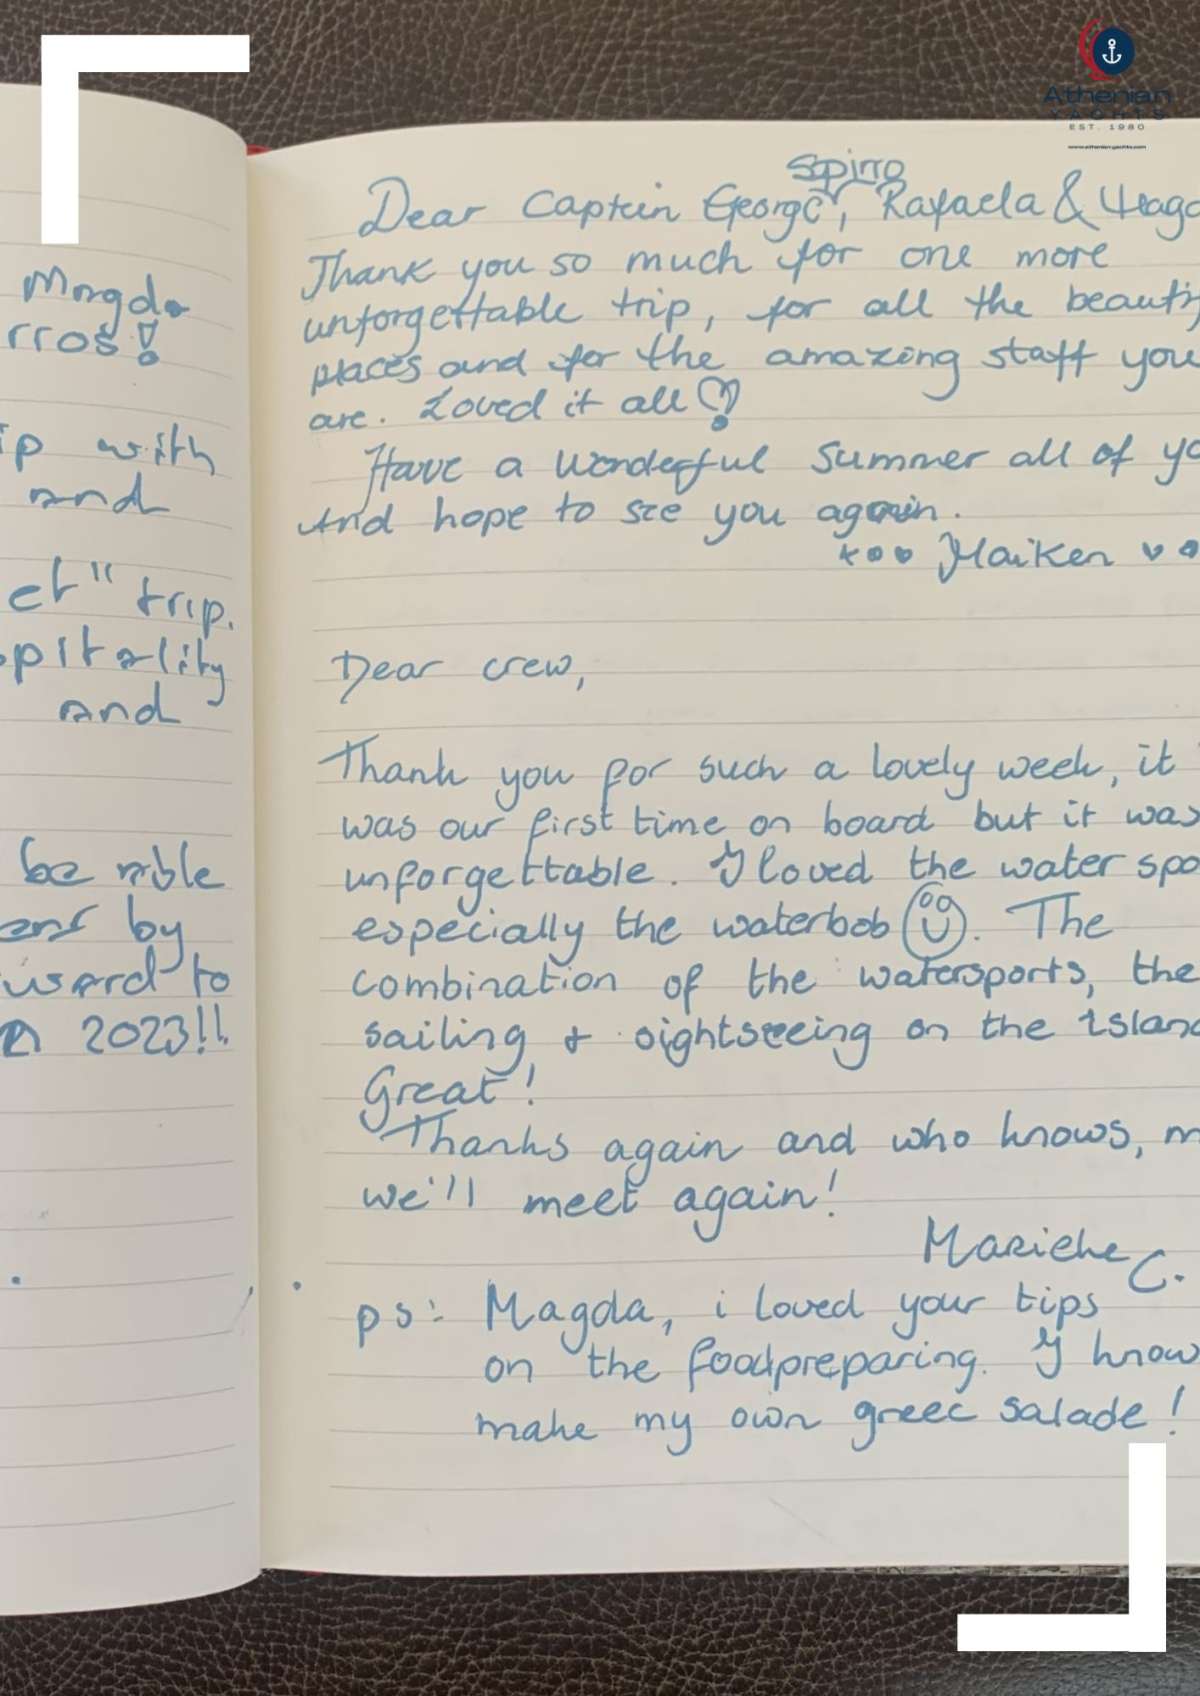 Athenian
YACHTS
EST. 1980
www.athenian-yachts.com
Magda
rros!
ip with
and
et" trip.
spitality
and
be able
by
ward to
2023!!
Spirro
Dear Captein George, Rafaela &
Thank you so much for one more
unforgettable trip, for all the beauti
places and for the amazing staff you
are. Loved it all
Have a wonderful summer all of yo
And hope to see you again.
Maiken
Dear crew,
Thank you for such a lovely week, it
was our first time on board but it was
unforgettable. I loved the water spo
especially the waterbob ☺. The
combination of the watersports, the
sailing + sightseeing on the island
Great!
Thanks again and who knows, m
we'll meet again!
Marieke C.
ps: Magda, i loved your tips
on the foodpreparing. I know
make my own greec salade!